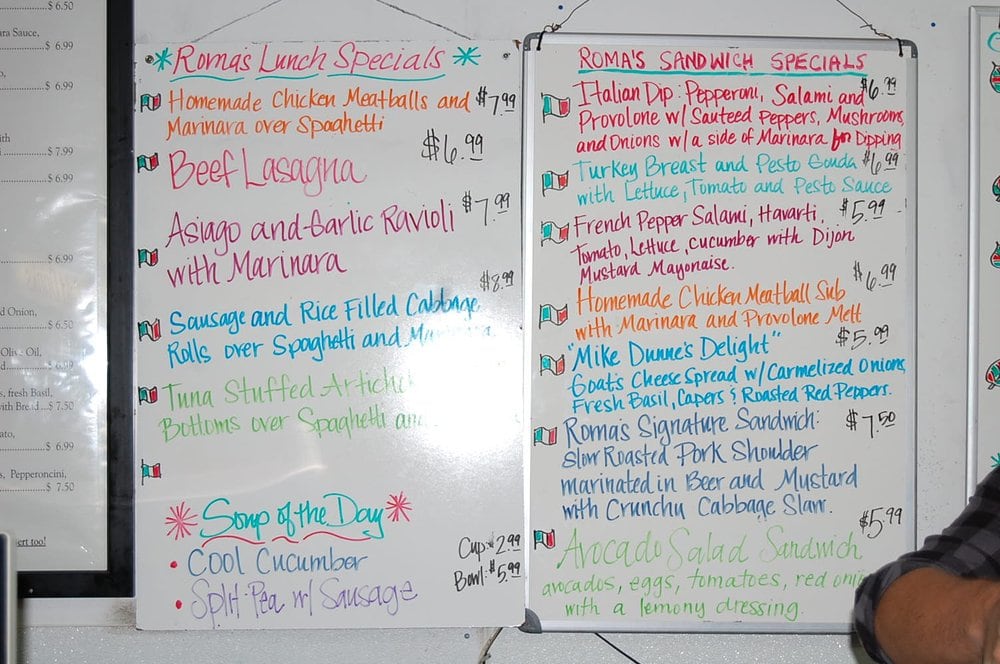 ara Sauce,
$ 6.99
$ 6.99
$ 7.99
$ 6.99
$ 6.99
d Onion,
$ 6.50
Olive Oil,
$ 6.99
s, fresh Basil,
with Bread ...$ 7.50
ato,
$ 6.99
s, Pepperoncini,
$ 7.50
ert too!
Roma's Lunch Specials
Homemade Chicken Meatballs and $7.99
Marinara over Spaghetti
$6.99
Beef Lasagna
Asiago and Garlic Ravioli $7.99
with Marinara
$8.99
Sausage and Rice Filled Cabbage
Rolls over Spaghetti and
Tuna Stuffed
Bottoms over Spaghetti and
Soup of the Day
• Cool Cucumber
• Split Pea w/ Sausage
Cup $2.99
Bowl $5.99
ROMA'S SANDWICH SPECIALS
Italian Dip: Pepperoni, Salami and $6.99
Provolone w/ Sauteed Peppers, Mushrooms
and Onions w/ a side of Marinara for Dipping
Turkey Breast and Pesto Gouda $6.99
with Lettuce, Tomato and Pesto Sauce
French Pepper Salami, Havarti, $5.99
Tomato, Lettuce, cucumber with Dijon
Mustard Mayonaise.
$6.99
Homemade Chicken Meatball Sub
with Marinara and Provolone Melt
"Mike Dunne's Delight" $5.99
Goat's Cheese Spread w/ Carmelized Onions,
Fresh Basil, Capers & Roasted Red Peppers.
Roma's Signature Sandwich: $7.50
Slow Roasted Pork Shoulder
marinated in Beer and Mustard
with Crunchy Cabbage Slaw.
$5.99
Avocado Salad Sandwich
avocados, eggs, tomatoes, red
with a lemony dressing.